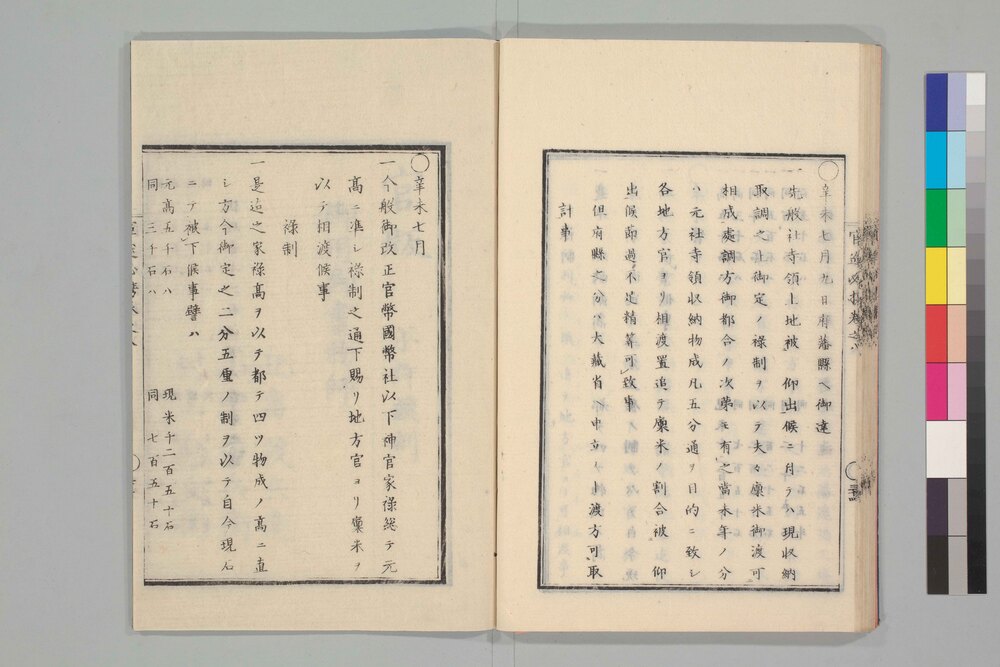 ○辛未七月九日府藩縣ヘ御達
一先般社寺領上地被 仰出候ニ付テハ現収納
取調之上御定ノ禄制ヲ以テ夫々廩米御渡可
相成處調方御都合ノ次第モ有之當未年ノ分
ハ元社寺領収納物成凡五分通ヲ目的ニ致シ
各地方官ヨリ相渡置追テ廩米ノ割合被 仰
出候節過不足精算可致事
但府縣之分ハ大藏省ヘ申立ノ上渡方可取
計事
○辛未七月
一今般御改正官幣國幣社以下神官家禄総テ元
高ニ準シ禄制之通下賜リ地方官ヨリ廩米ヲ
以テ相渡候事
禄制
一是迠之家禄高ヲ以テ都テ四ツ物成ノ高ニ直
シ方今御定之二分五厘ノ制ヲ以テ自今現石
ニテ被下候事譬ハ
元高五千石ハ 現米千二百五十石
同 三千石ハ 同 七百五十石